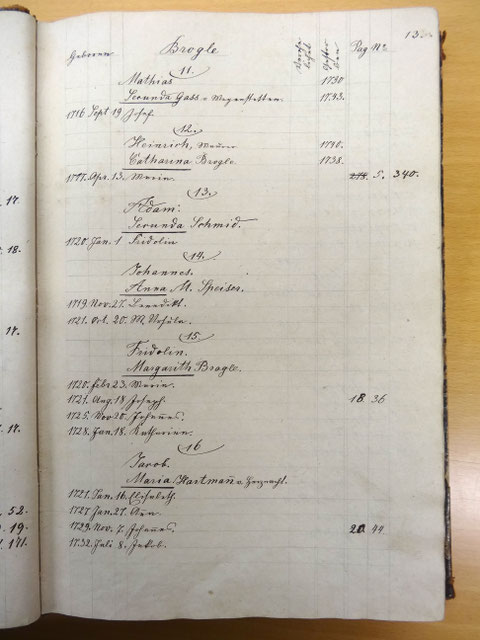 13
Geboren Brogle Verehe- lichet Gestor- ben Pag No
11.
Mathias 1730
Secunda Gass v. Wegenstetten. 1743.
1716 Sept 19 Josef
12.
Heinrich, 1740.
Catharina Brogle. 1738.
1717. Apr. 13. Maria. 5. 340.
13.
Adam.
Secunda Schmid.
1720. Jan. 1 Fridolin
14.
Johannes.
Anna M. Speiser.
1719. Nov. 27. Benedikt.
1721. Oct. 20. M. Ursula.
15
Fridolin.
Margarith Brogle.
1720. Febr 23. Maria.
1721. Aug. 18 Joseph. 18 36
1725. Nov 20. Johannes.
1728. Jan. 18. Katharina.
16
Jacob.
Maria Hartmañ v.
1721. Jan. 16. Elisabeth.
1727 Jan. 27.
1729. Nov. 7. Johañes. 20 44
1732. Juli 8. Jakob.
17.
18.
17.
17.
52.
19.
171.